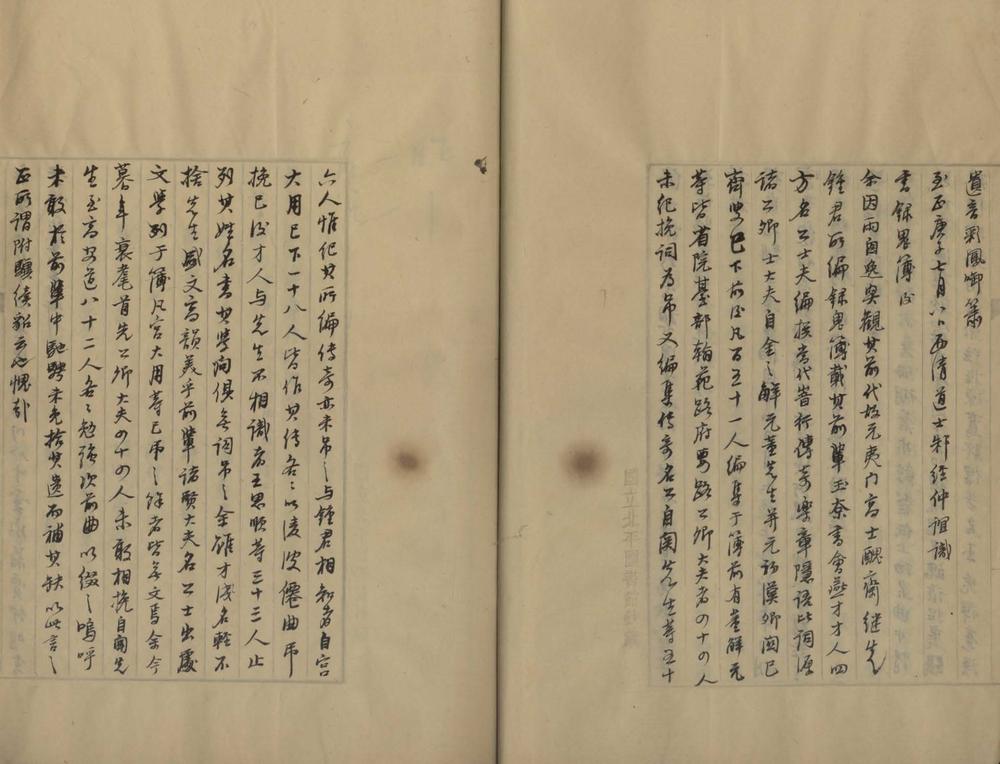 遺音彩鳳啣簫
至正庚子七月八日西清道士邾經仲誼識
書録鬼簿后
余因雨窗逸興觀其前代故元夷门高士醜齋继先
鍾君所編録鬼簿載其前輩玉京書會燕才才人四
方名公士夫編撰當代時行傳奇樂章隱語比詞源
諸公卿士大夫自金之解元董先生并元初漢卿関已
齋叟已下前后凡百五十一人編集于簿前有董解元
等皆省院䑓部翰苑路府要路公卿大夫者四十四人
未纪挽詞為吊又編集传奇名公自関先生等五十
六人惟纪其所編传奇亦未吊之与鍾君相知者自宫
大用已下一十八人皆作其传各各以凌波僊曲吊
挽已後才人与先生不相識者王思順等三十三人止
列其姓名書其學问俱無詞吊之余雖才浅名輕不
捨先生盛文高韻美乎前輩諸賢大夫名公士出處
文學列于簿凡宫大用等已吊之餘者皆無文焉余今
暮年衰耄首先公卿大夫四十四人未敢相挽自関先
生至高安道八十二人各各勉強次前曲以缀之嗚呼
未敢於前輩中馳騁未免拾其遺而補其缺以此言之
正所謂附驥續貂云也愧哉